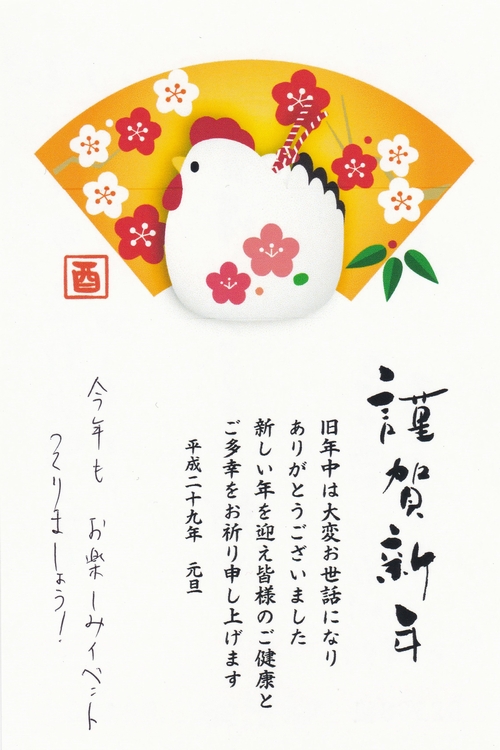 謹賀新年
旧年中は大変お世話になり
ありがとうございました
新しい年を迎え皆様のご健康と
ご多幸をお祈り申し上げます
平成二十九年 元旦
今年も お楽しみイベント
つくりましょう!
酉